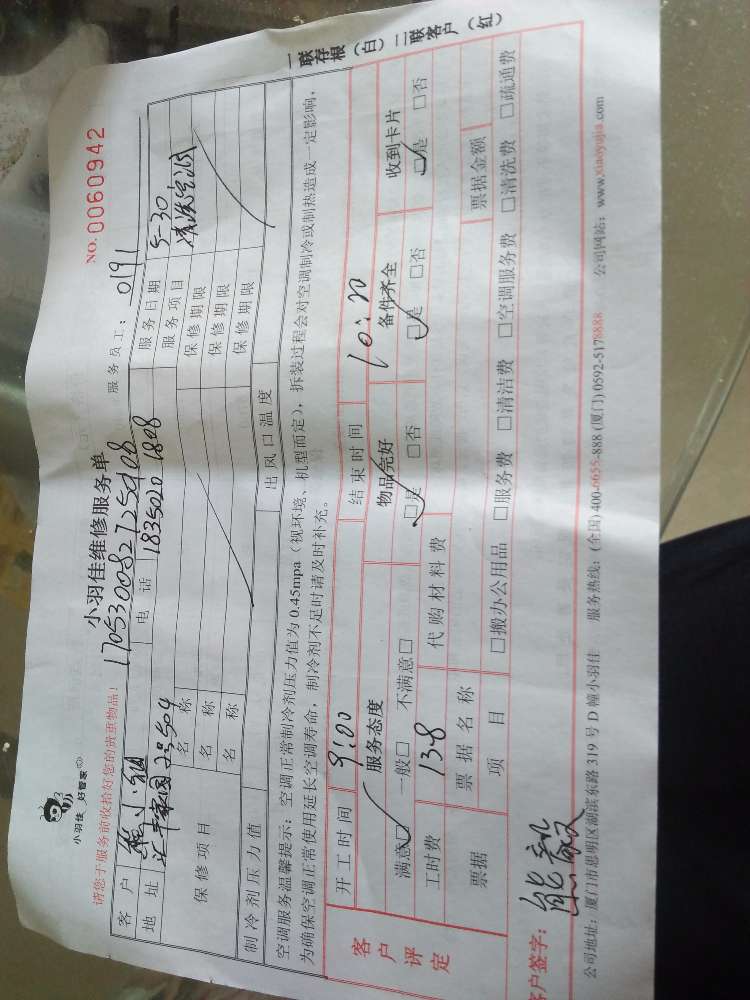 小羽佳 好管家
NO. 0060942
小羽佳维修服务单
请您于服务前收拾好您的贵重物品！
1705300827259108
服务员工： 0191
客户 熊小姐 电话 18350201808 服务日期 5-30
地址 汇丰家园2号504 服务项目 清洗空调
保修项目 名称 保修期限
名称 保修期限
名称 保修期限
制冷剂压力值 出风口温度
空调服务温馨提示：空调正常制冷剂压力值为0.45mpa（视环境、机型而定），拆装过程会对空调制冷或制热造成一定影响，
为确保空调正常使用延长空调寿命，制冷剂不足时请及时补充。
一联存根（白）二联客户（红）
客户评定
开工时间 9:00 结束时间 10:20
服务态度 物品完好 备件齐全 收到卡片
满意□ 一般□ 不满意□ □是 □否 □是 □否 □是 □否
工时费 138 代购材料费
票据 票据名称 票据金额
项目 □搬办公用品 □服务费 □清洁费 □空调服务费 □清洗费 □疏通费
客户签字： 熊毅
公司地址：厦门市思明区湖滨东路319号D幢小羽佳 服务热线：(全国)400-6655-888 (厦门)0592-5178888 公司网站：www.xiaoyujia.com